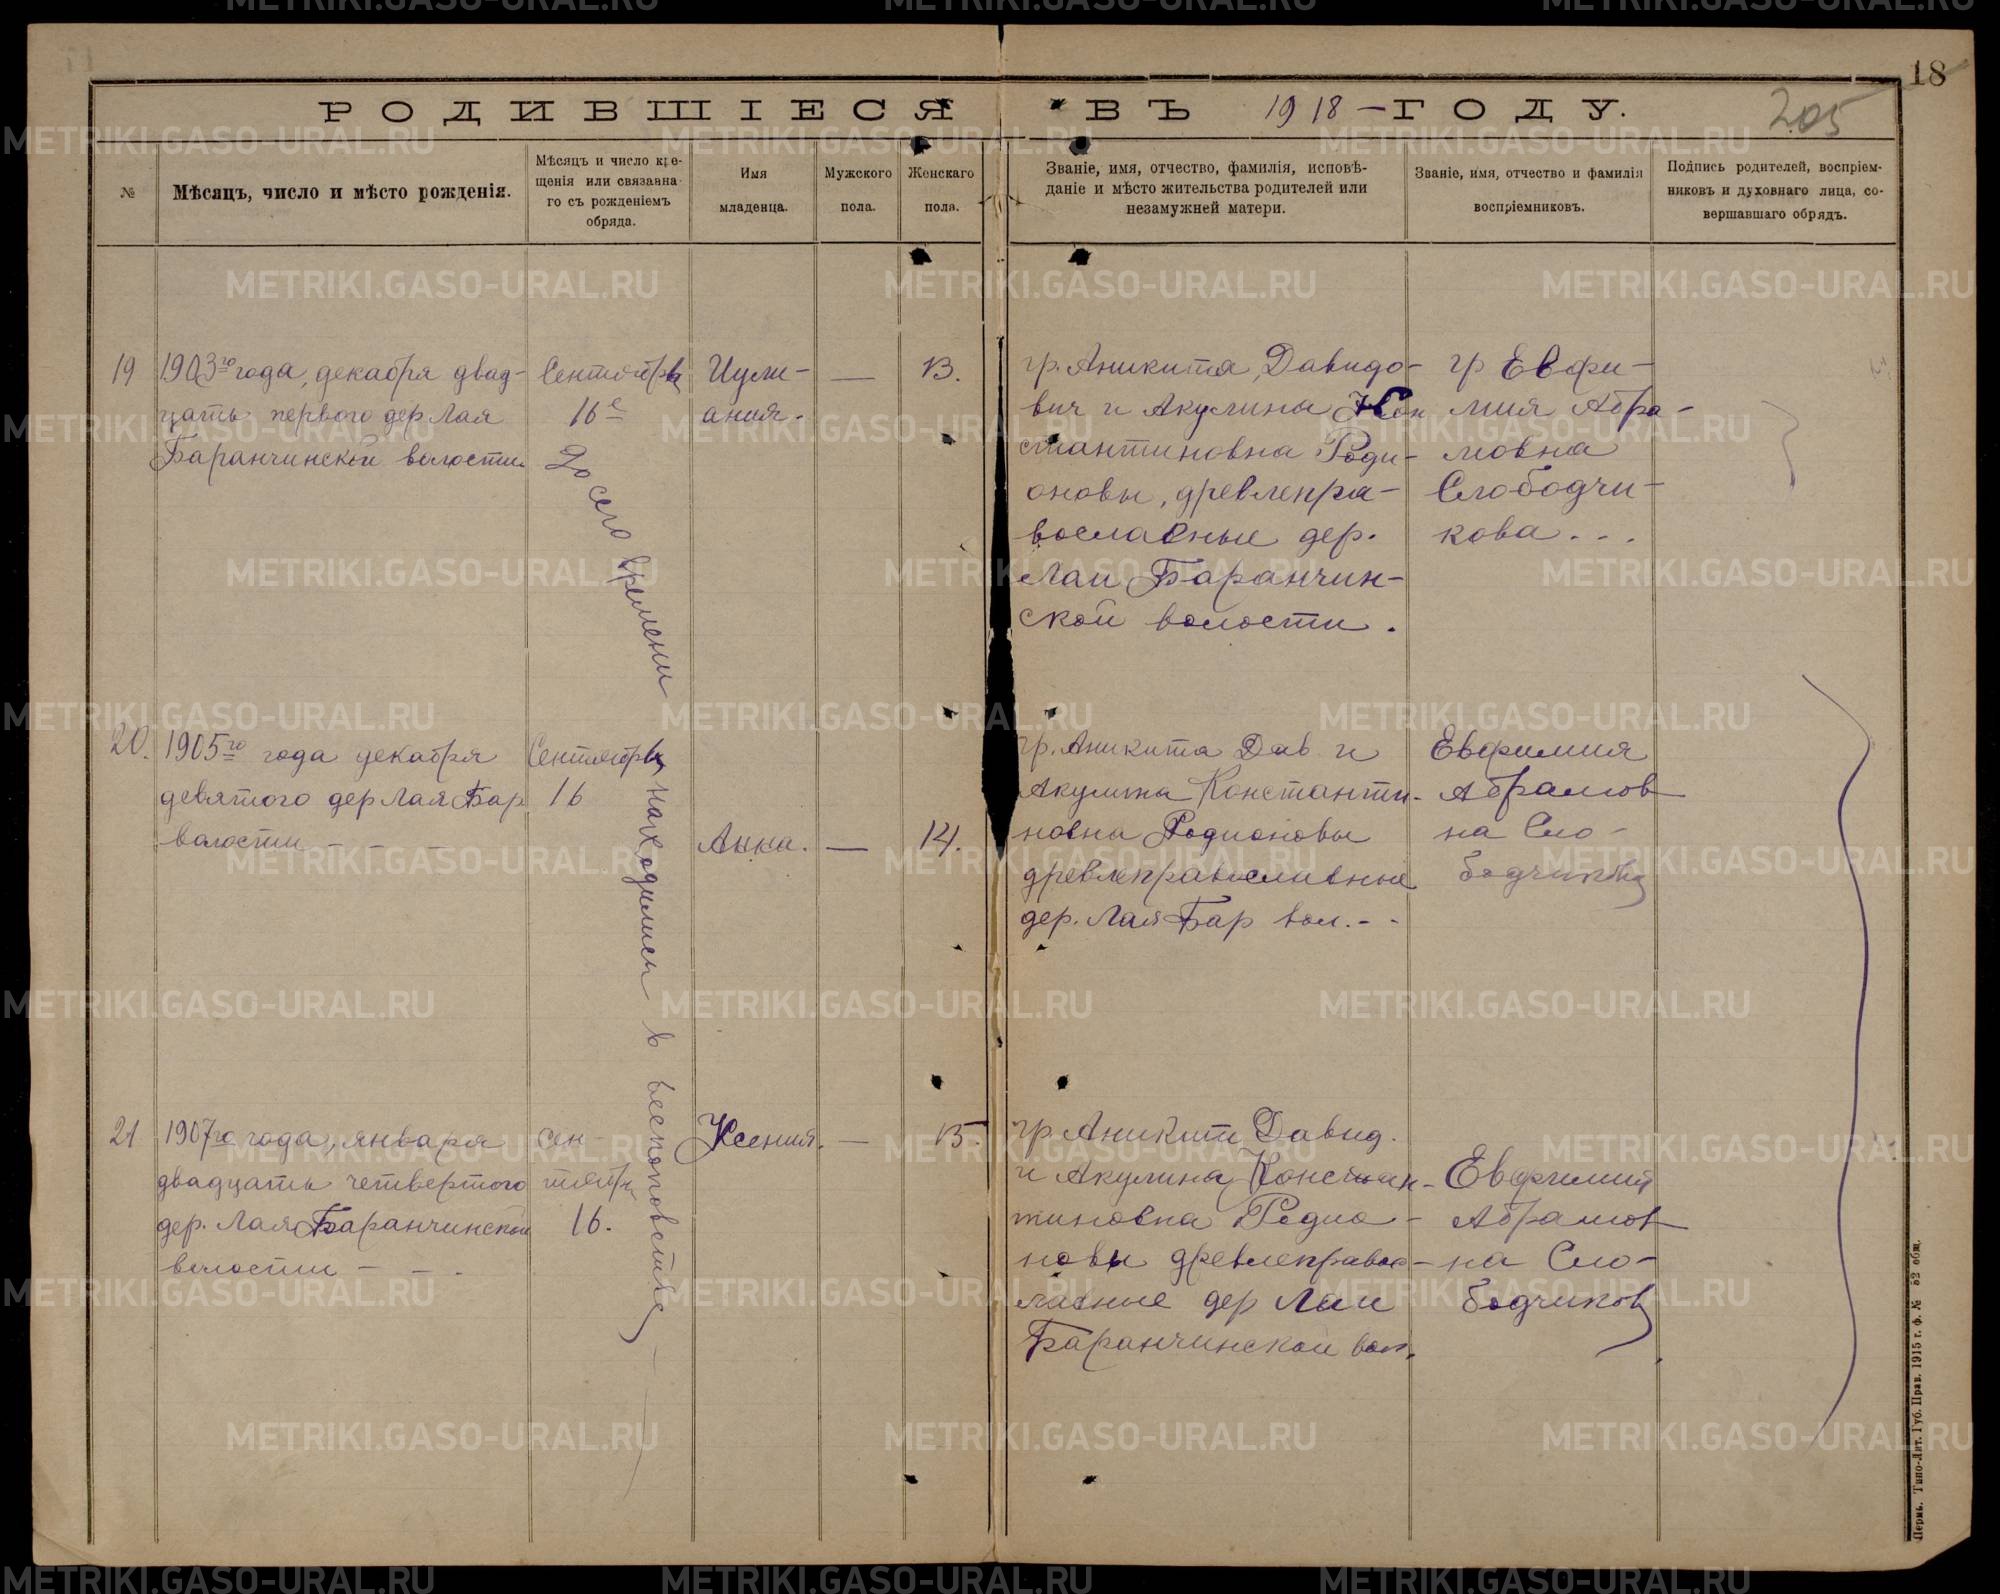 18
205
РОДИВШІЕСЯ ВЪ 1918 – ГОДУ.
№
Мѣсяцъ, число и мѣсто рожденія.
Мѣсяцъ и число кре-
щенія или связанна-
го съ рожденіемъ
обряда.
Имя
младенца.
Мужского
пола.
Женскаго
пола.
Званіе, имя, отчество, фамилія, исповѣ-
даніе и мѣсто жительства родителей или
незамужней матери.
Званіе, имя, отчество и фамилія
воспріемниковъ.
Подпись родителей, воспріем-
никовъ и духовнаго лица, со-
вершавшаго обрядъ.
19
1903го года, декабря двад-
цать первого дер Лая
Баранчинской волости
Сентября
16е
Иули-
ания.
—
13.
гр. Аникита Давидо-
вич и Акулина Кон
стантиновна Роди-
оновы, древлепра-
вославные дер.
Лаи Баранчин-
ской волости.
гр Евфи-
мия Абра-
мовна
Слободчи-
кова...
20.
1905го года декабря
девятого дер Лая Бар
волости - - -
Сентября
16
Анна.
—
14.
гр. Аникита Дав и
Акулина Константи-
новна Родионовы
древлеправославные
дер. Лая Бар вол. - -
Евфимия
Абрамов
на Сло-
бодчикова
21
1907го года, января
двадцать четвертого
дер. Лая Баранчинской
волости - - -
сен-
тября
16.
Ксения.
—
15.
гр. Аникит Давид.
и Акулина Констан-
тиновна Родио-
новы древлеправос-
лавные дер Лаи
Баранчинской вол.
Евфимия
Абрамов
на Сло-
бодчиков
До сего времени находились в беспоповстве
Пермь. Типо-Лит. Губ. Прав. 1915 г. ф. № 52 общ.
METRIKI.GASO-URAL.RU